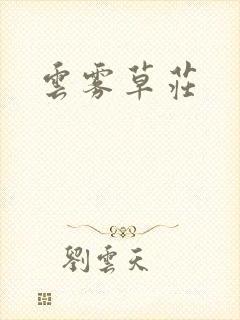 雲雾草莊
劉雲天